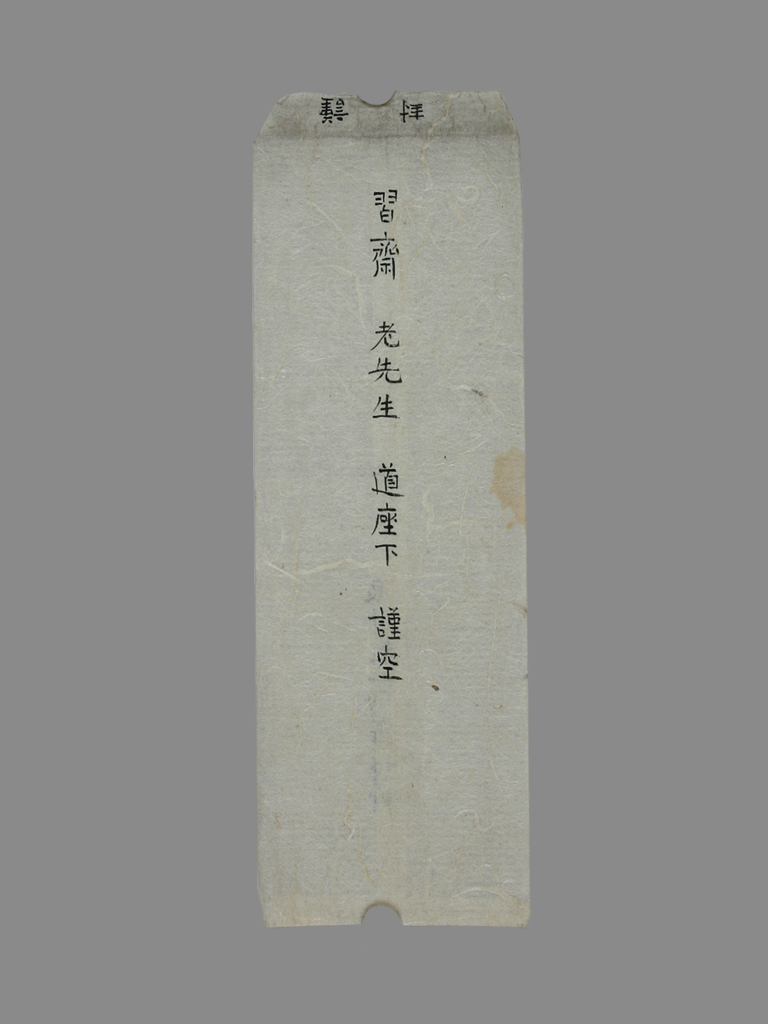 謹拜
習齋 老先生 道座下 謹空